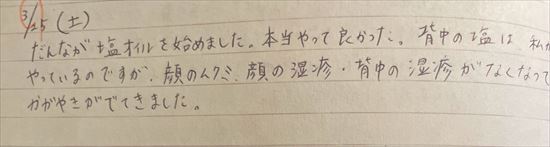 3/25（土）
だんなが塩オイルを始めました。本当やって良かった。背中の塩は、私が
やっているのですが、顔のムクミ、顔の湿疹・背中の湿疹がなくなって
かがやきがでてきました。